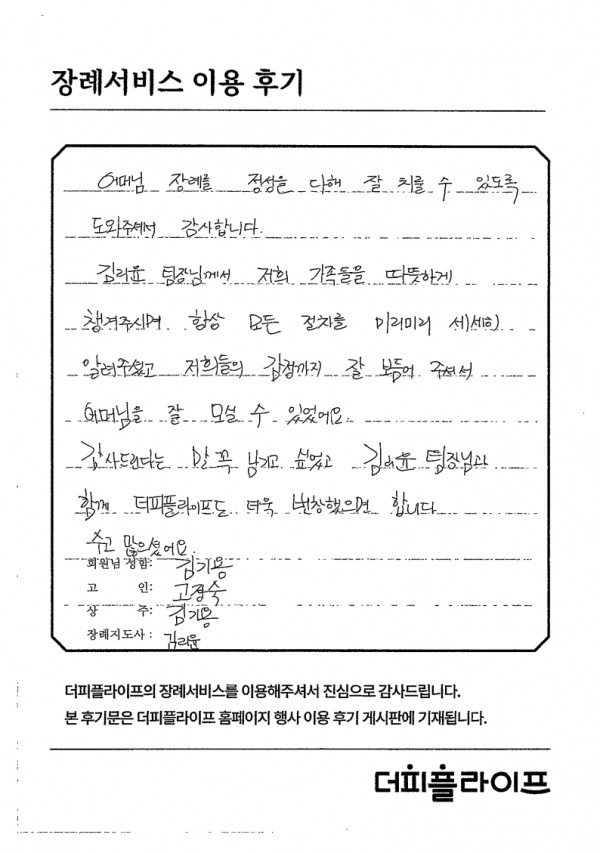 장례서비스 이용 후기
어머님 장례를 정성을 다해 잘 치를 수 있도록
도와주셔서 감사합니다.
김리윤 팀장님께서 저희 가족들을 따뜻하게
챙겨주시며 항상 모든 절차를 미리미리 세세히
알려주셨고 저희들의 감정까지 잘 보듬어 주셔서
어머님을 잘 모실 수 있었어요.
감사드린다는 말 꼭 남기고 싶었고 김리윤 팀장님과
함께 더피플라이프도 더욱 번창했으면 합니다
수고 많으셨어요.
회원님 성함: 김기용
고 인: 고정숙
상 주: 김기용
장례지도사: 김리윤
더피플라이프의 장례서비스를 이용해주셔서 진심으로 감사드립니다.
본 후기문은 더피플라이프 홈페이지 행사 이용 후기 게시판에 기재됩니다.
더피플라이프